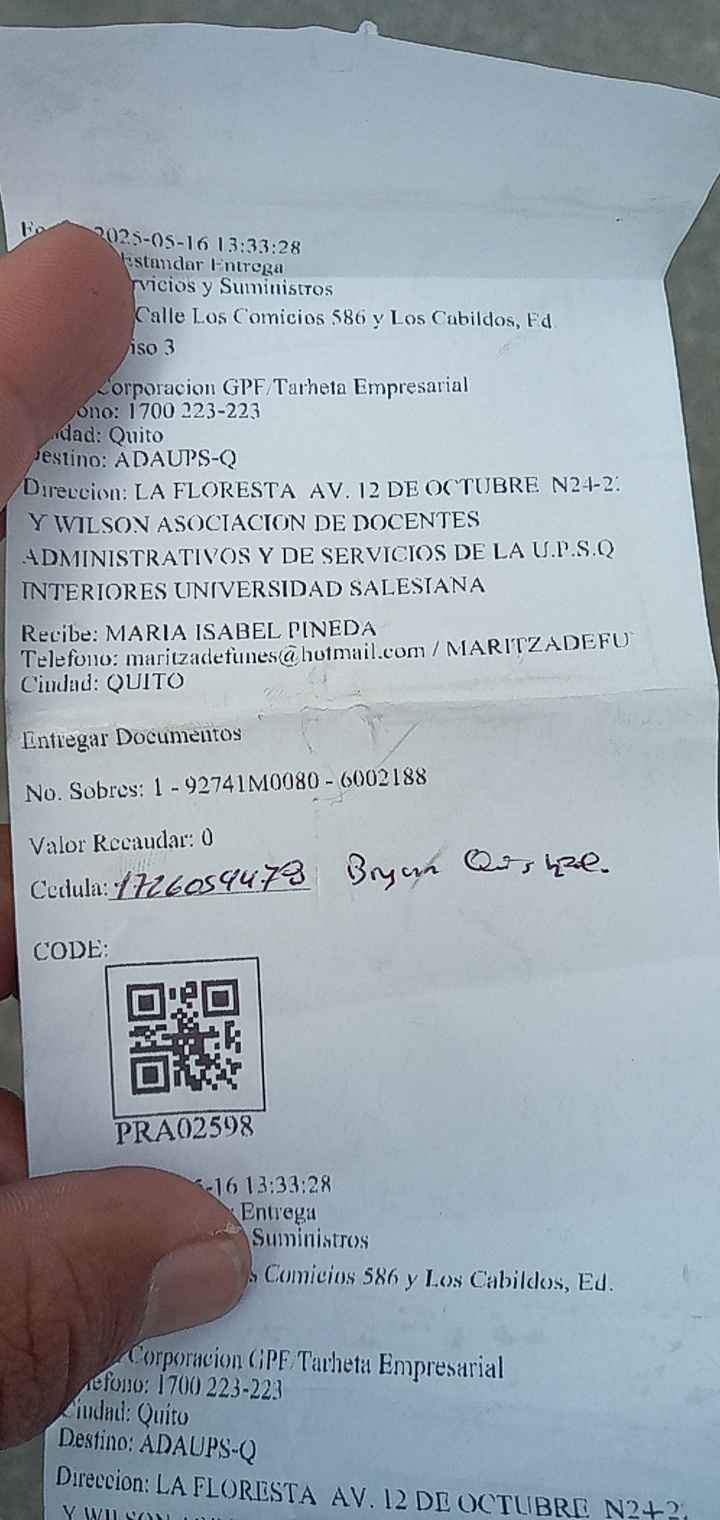 2025-05-16 13:33:28
Estandar Entrega
rvicios y Suministros
Calle Los Comicios 586 y Los Cabildos, Ed.
iso 3
Corporacion GPF/Tarheta Empresarial
ono: 1700 223-223
dad: Quito
Destino: ADAUPS-Q
Direccion: LA FLORESTA AV. 12 DE OCTUBRE N24-2
Y WILSON ASOCIACION DE DOCENTES
ADMINISTRATIVOS Y DE SERVICIOS DE LA U.P.S.Q
INTERIORES UNIVERSIDAD SALESIANA
Recibe: MARIA ISABEL PINEDA
Telefono: maritzadefunes@hotmail.com / MARITZADEFU
Ciudad: QUITO
Entregar Documentos
No. Sobres: 1 - 92741M0080 - 6002188
Valor Recaudar: 0
Cedula: Bryan
CODE:
PRA02598
-16 13:33:28
Entrega
Suministros
s Comicios 586 y Los Cabildos, Ed.
Corporacion GPF/Tarheta Empresarial
lefono: 1700 223-223
Ciudad: Quito
Destino: ADAUPS-Q
Direccion: LA FLORESTA AV. 12 DE OCTUBRE N24-2
Y WILSON